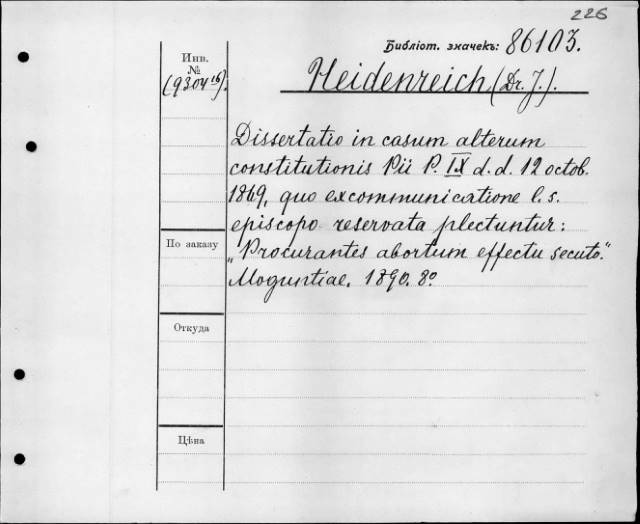 226
Библіот. значекъ: 86103.
Инв.
№
(9304¹⁶).
Heidenreich (Dr. J.).
Dissertatio in casum alterum
constitutionis Pii P. IX d. d. 12 octob.
1869, quo excommunicatione l. s.
episcopo reservata plectuntur:
„Procurantes abortum effectu secuto."
Moguntiae. 1890. 8º
По заказу
Откуда
Цѣна